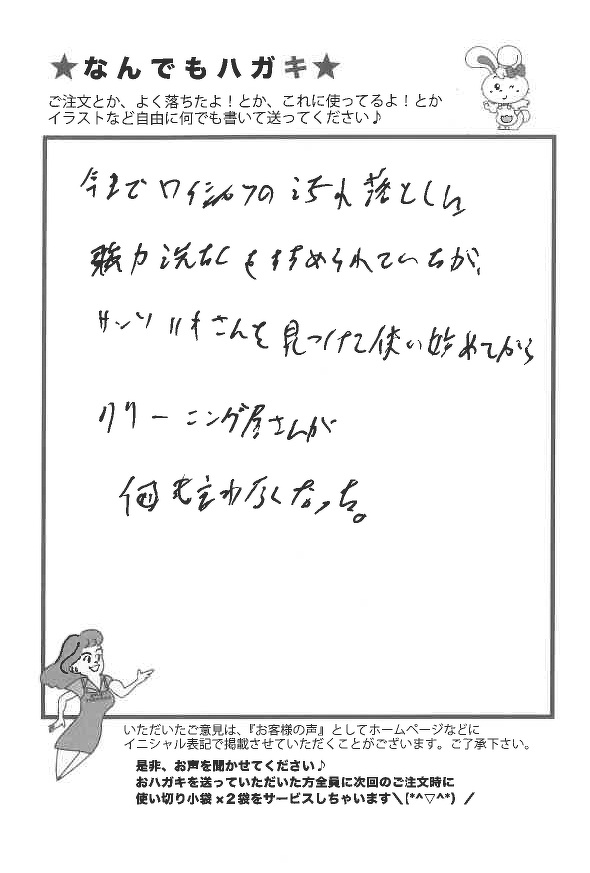 ★なんでもハガキ★
ご注文とか、よく落ちたよ！とか、これに使ってるよ！とか
イラストなど自由に何でも書いて送ってください♪
今まで ワイシャツの 汚れ 落としに
強力 洗たくを すすめられていたが、
サンソ パオさんを 見つけて 使い始めてから
クリーニング屋さんが
何も言われなくなった。
いただいたご意見は、『お客様の声』としてホームページなどに
イニシャル表記で掲載させていただくことがございます。ご了承下さい。
是非、お声を聞かせてください♪
おハガキを送っていただいた方全員に次回のご注文時に
使い切り小袋×2袋をサービスしちゃいます＼(*^▽^*)／